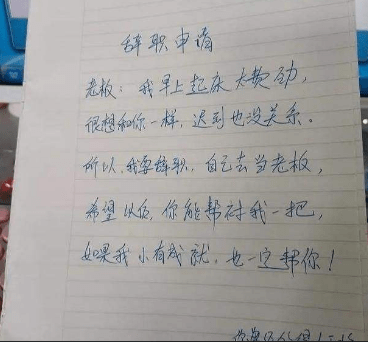 辞职申请
老板：我早上起床太费劲，
很想和你一样，迟到也没关系。
所以，我要辞职，自己去当老板，
希望以后，你能帮衬我一把，
如果我小有成就，也一定帮你！